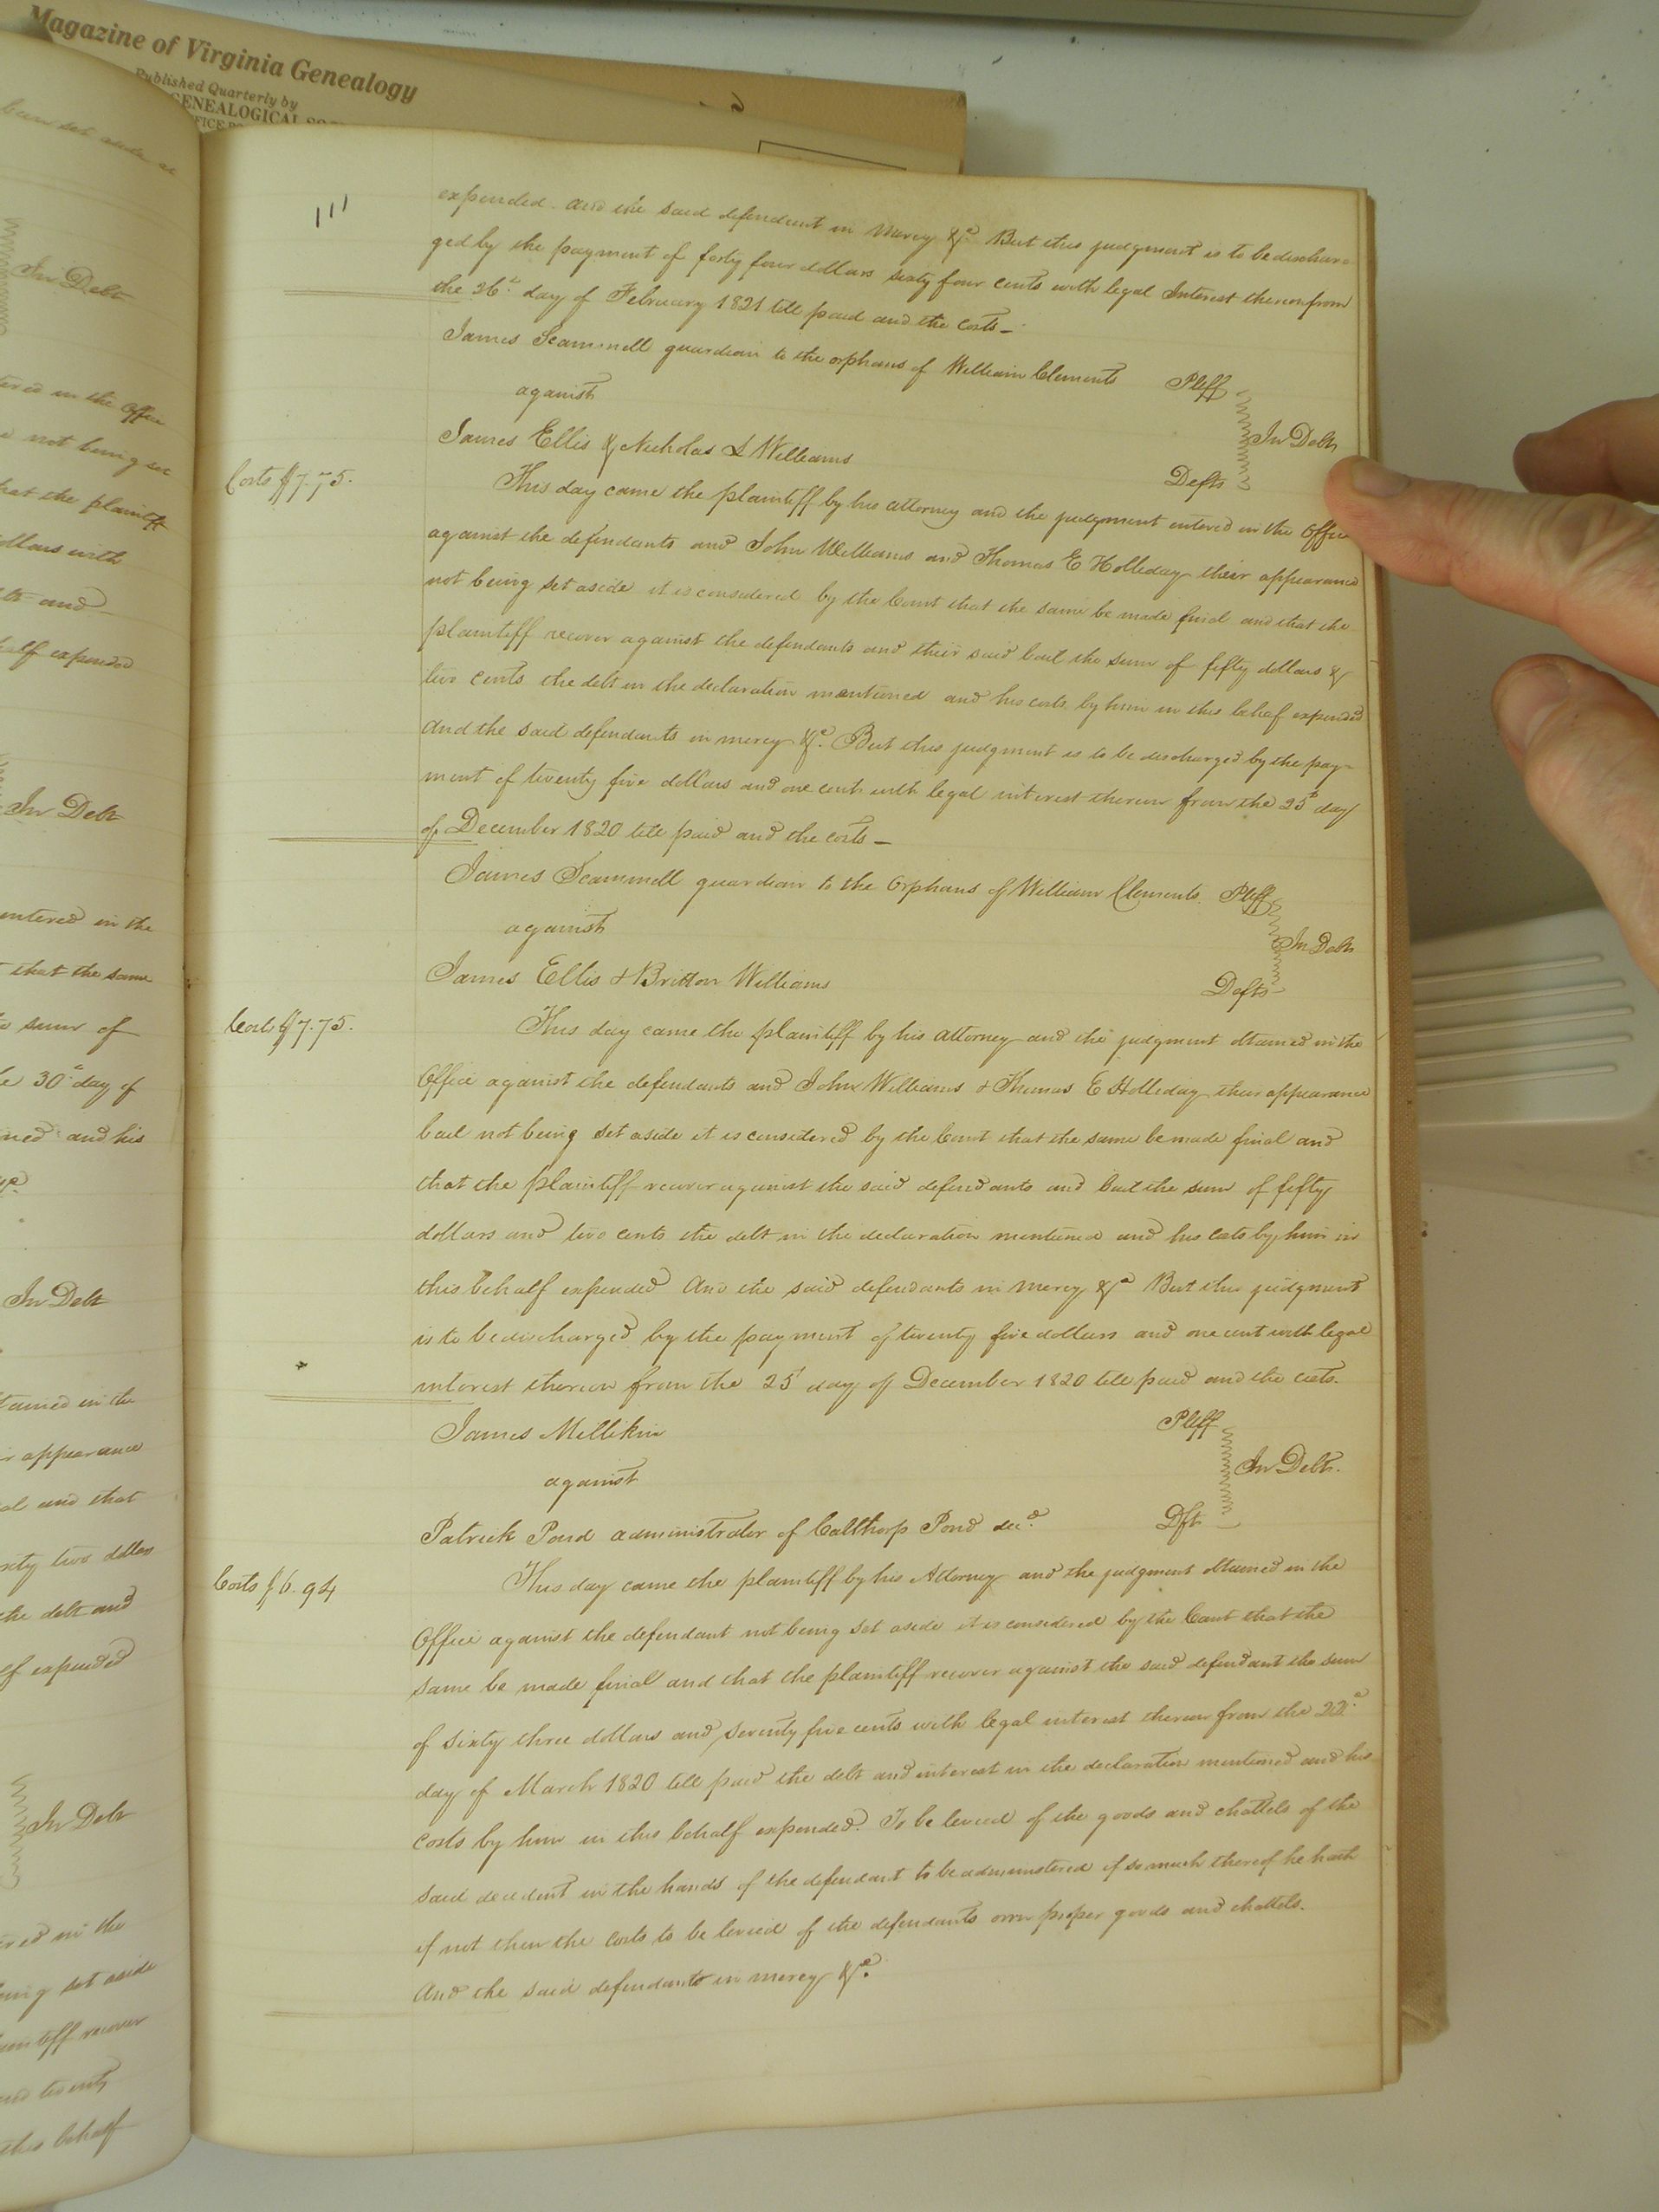 Magazine of Virginia Genealogy
Published Quarterly by
GENEALOGICAL
111
expended. And the said defendant in Mercy &c. But this judgment is to be dischar-
ged by the payment of forty four dollars sixty four cents with legal Interest thereon from
the 26th day of February 1821 till paid and the Costs —
James Scammell guardian to the orphans of William Clements Pltff
against
In Debt
James Ellis & Nicholas L Williams
Defts
Costs $7.75.
This day came the plaintiff by his attorney and the judgment entered in the Office
against the defendants and John Williams and Thomas E Holliday their appearance
not being set aside it is considered by the Court that the same be made final and that the
plaintiff recover against the defendants and their said bail the sum of fifty dollars &
two cents the debt in the declaration mentioned and his costs by him in this behalf expended
And the said defendants in mercy &c. But this judgment is to be discharged by the pay-
ment of twenty five dollars and one cent with legal interest thereon from the 25th day
of December 1820 till paid and the costs —
James Scammell guardian to the Orphans of William Clements Pltff
against
In Debt
James Ellis & Britton Williams
Defts
Costs $7.75.
This day came the plaintiff by his attorney and the judgment obtained in the
Office against the defendants and John Williams & Thomas E Holliday their appearance
bail not being set aside it is considered by the Court that the same be made final and
that the plaintiff recover against the said defendants and bail the sum of fifty
dollars and two cents the debt in the declaration mentioned and his costs by him in
this behalf expended And the said defendants in mercy &c But this judgment
is to be discharged by the payment of twenty five dollars and one cent with legal
interest thereon from the 25th day of December 1820 till paid and the costs.
James Millikin Pltff
against
In Debt.
Patrick Pond administrator of Calthorp Pond decd. Dft
Costs $6.94
This day came the plaintiff by his Attorney and the judgment obtained in the
Office against the defendant not being set aside it is considered by the Court that the
same be made final and that the plaintiff recover against the said defendant the sum
of sixty three dollars and seventy five cents with legal interest thereon from the 22d.
day of March 1820 till paid the debt and interest in the declaration mentioned and his
costs by him in this behalf expended. To be levied of the goods and chattels of the
said decedent in the hands of the defendant to be administered if so much thereof he hath
if not then the costs to be levied of the defendants own proper goods and chattels.
And the said defendants in mercy &c.
In Debt
entered in the Office
not being set
that the plaintiff
dollars with
and
half expended
In Debt
entered in the
that the same
sum of
30th day of
and his
In Debt
obtained in the
appearance
and that
sixty two dollars
the debt and
expended
In Debt
in the
being set aside
plaintiff recover
and twenty
this behalf